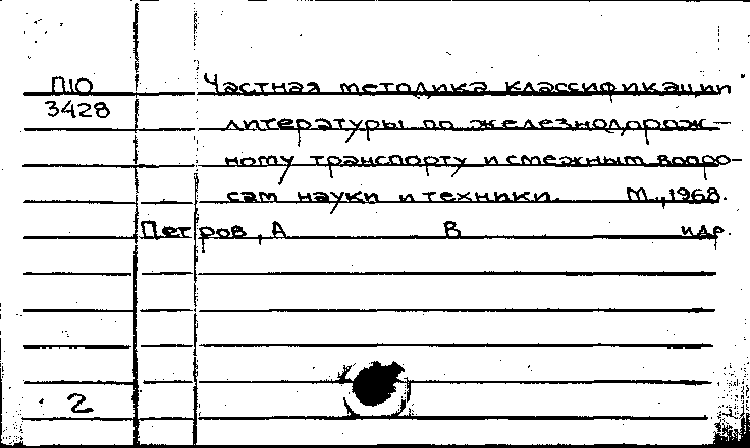 П10 Частная методика классификации
3428
литературы по железнодорож-
ному транспорту и смежным вопро-
сам науки и техники. М., 1968.
Петров, А В и др.
2